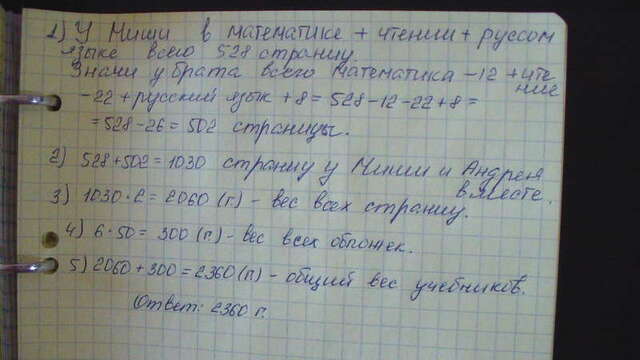 1) У Миши в математике + чтении + руссом
языке всего 528 страниц
Значи у брата всего математика -12 + чте
ние
-22 + русский язык + 8 = 528-12-22+8 =
= 528-26 = 502 страницы.
2) 528+502 = 1030 страниц у Миши и Андрея
вместе.
3) 1030·2 = 2060 (г) - вес всех страниц.
4) 6·50 = 300 (г) - вес всех обложек.
5) 2060 + 300 = 2360 (г) - общий вес учебников.
Ответ: 2360 г.